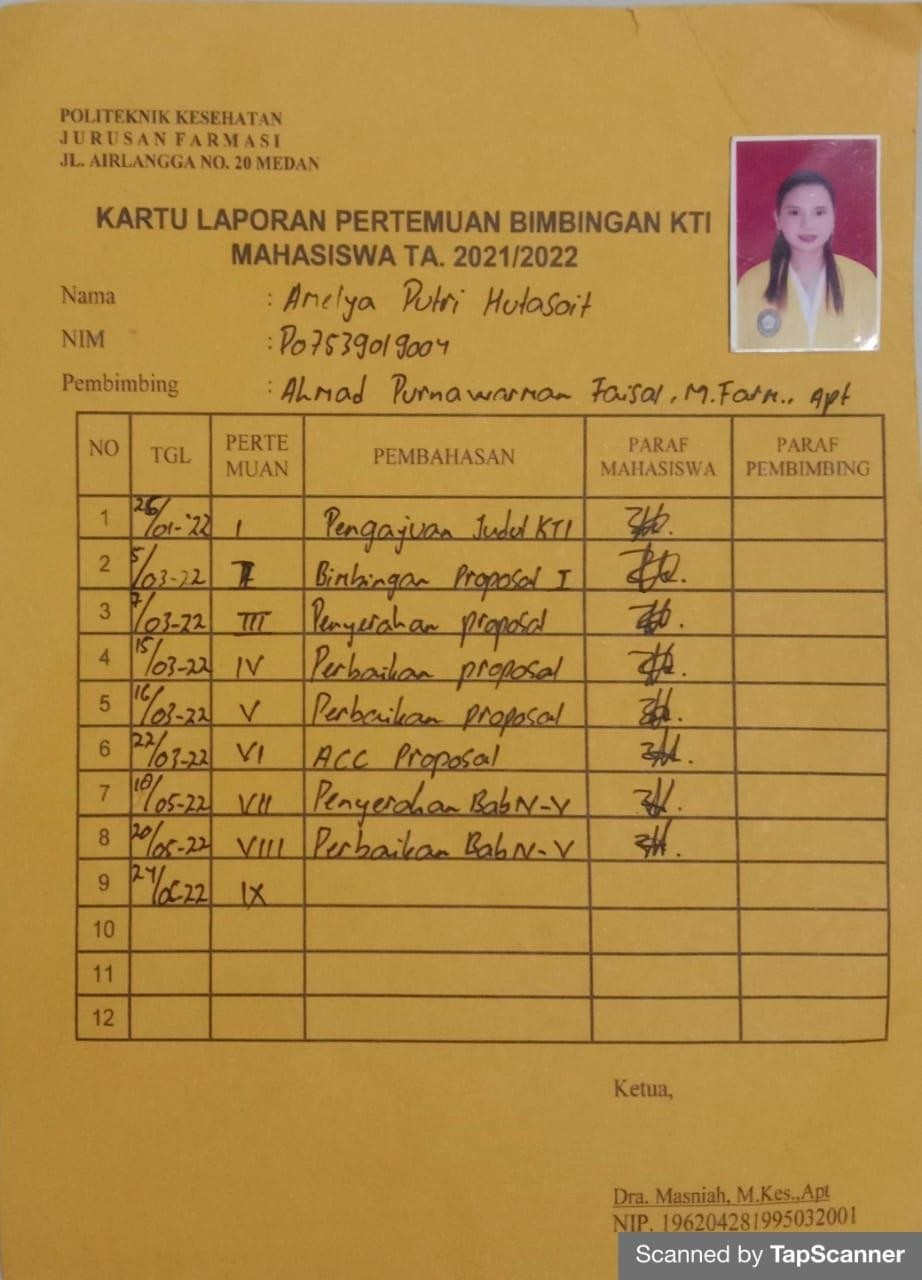 POLITEKNIK KESEHATAN
JURUSAN FARMASI
JL. AIRLANGGA NO. 20 MEDAN
KARTU LAPORAN PERTEMUAN BIMBINGAN KTI
MAHASISWA TA. 2021/2022
Nama : Amelya Putri Hutasoit
NIM : P07539019004
Pembimbing : Ahmad Purnawarman Faisal, M.Farm., Apt
NO TGL PERTE MUAN PEMBAHASAN PARAF MAHASISWA PARAF PEMBIMBING
1 26/01-'22 I Pengajuan Judul KTI
2 5/03-22 II Bimbingan Proposal I
3 7/03-22 III Penyerahan proposal
4 15/03-22 IV Perbaikan proposal
5 16/03-22 V Perbaikan proposal
6 22/03-22 VI ACC Proposal
7 18/05-22 VII Penyerahan Bab IV-V
8 20/05-22 VIII Perbaikan Bab IV-V
9 IX
10
11
12
Ketua,
Dra. Masniah, M.Kes.,Apt
NIP. 196204281995032001
Scanned by TapScanner